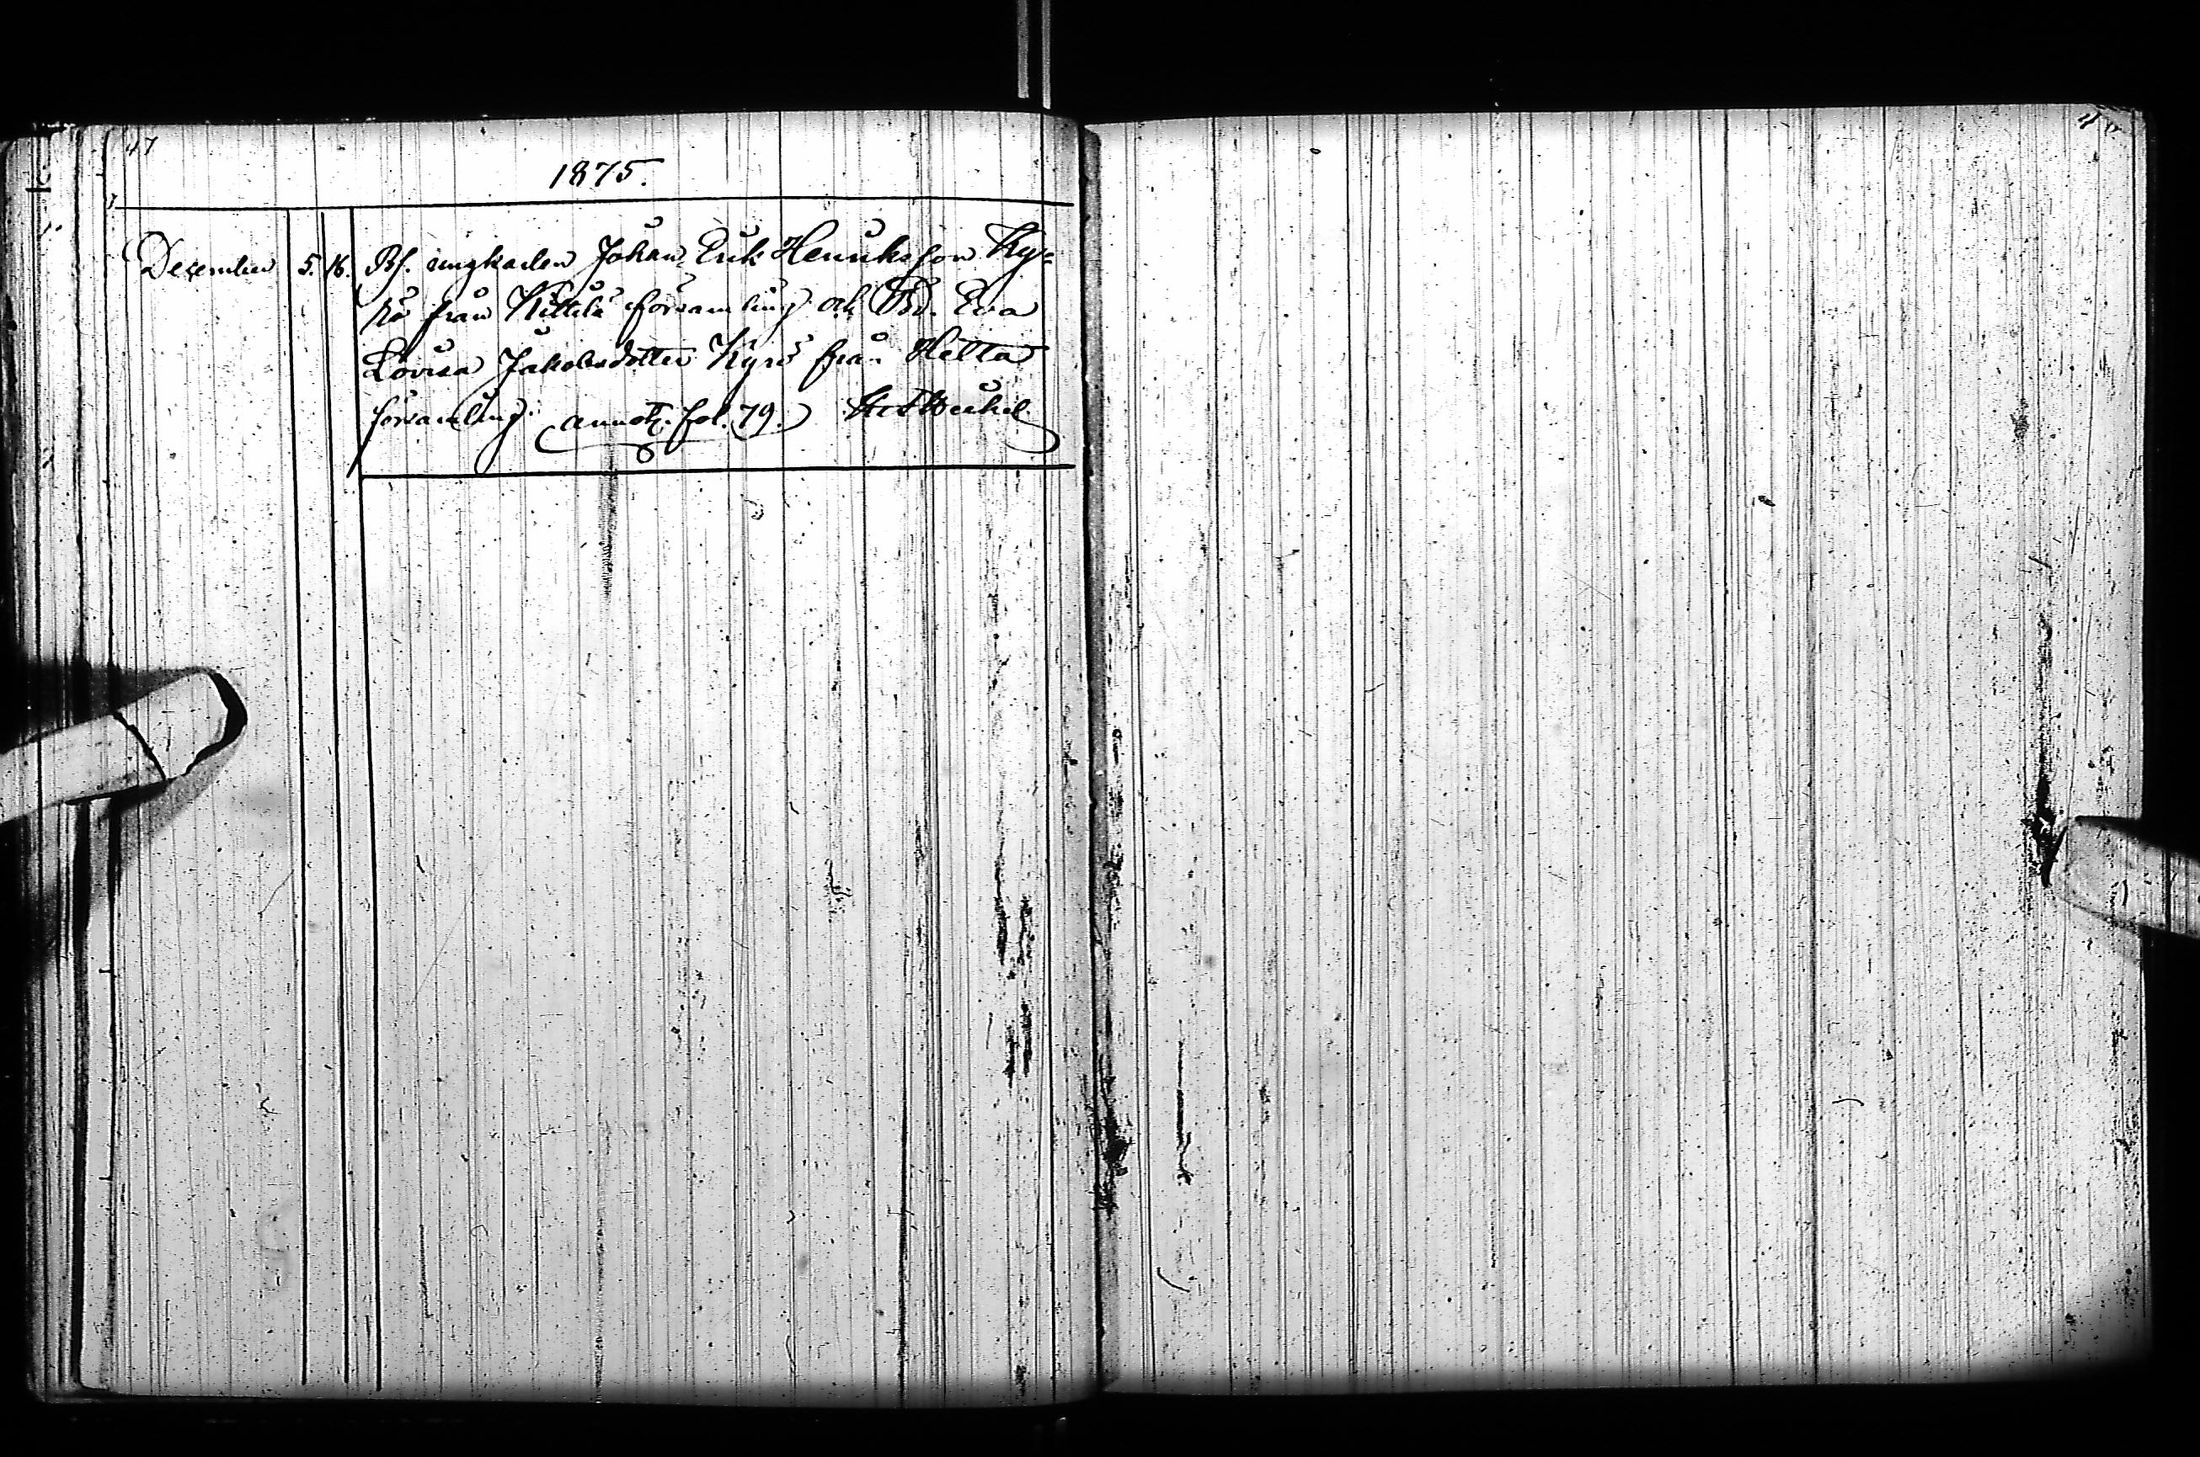 47
1875.
Dezember 5. 16. Bs. ungkarlen Johan Erik Henriksson Ky=
rö från Kittilä församling och Bd. Eva
Lovisa Jakobsdotter Kyrö från Hetta
församling. (annot. fol. 79.)
4